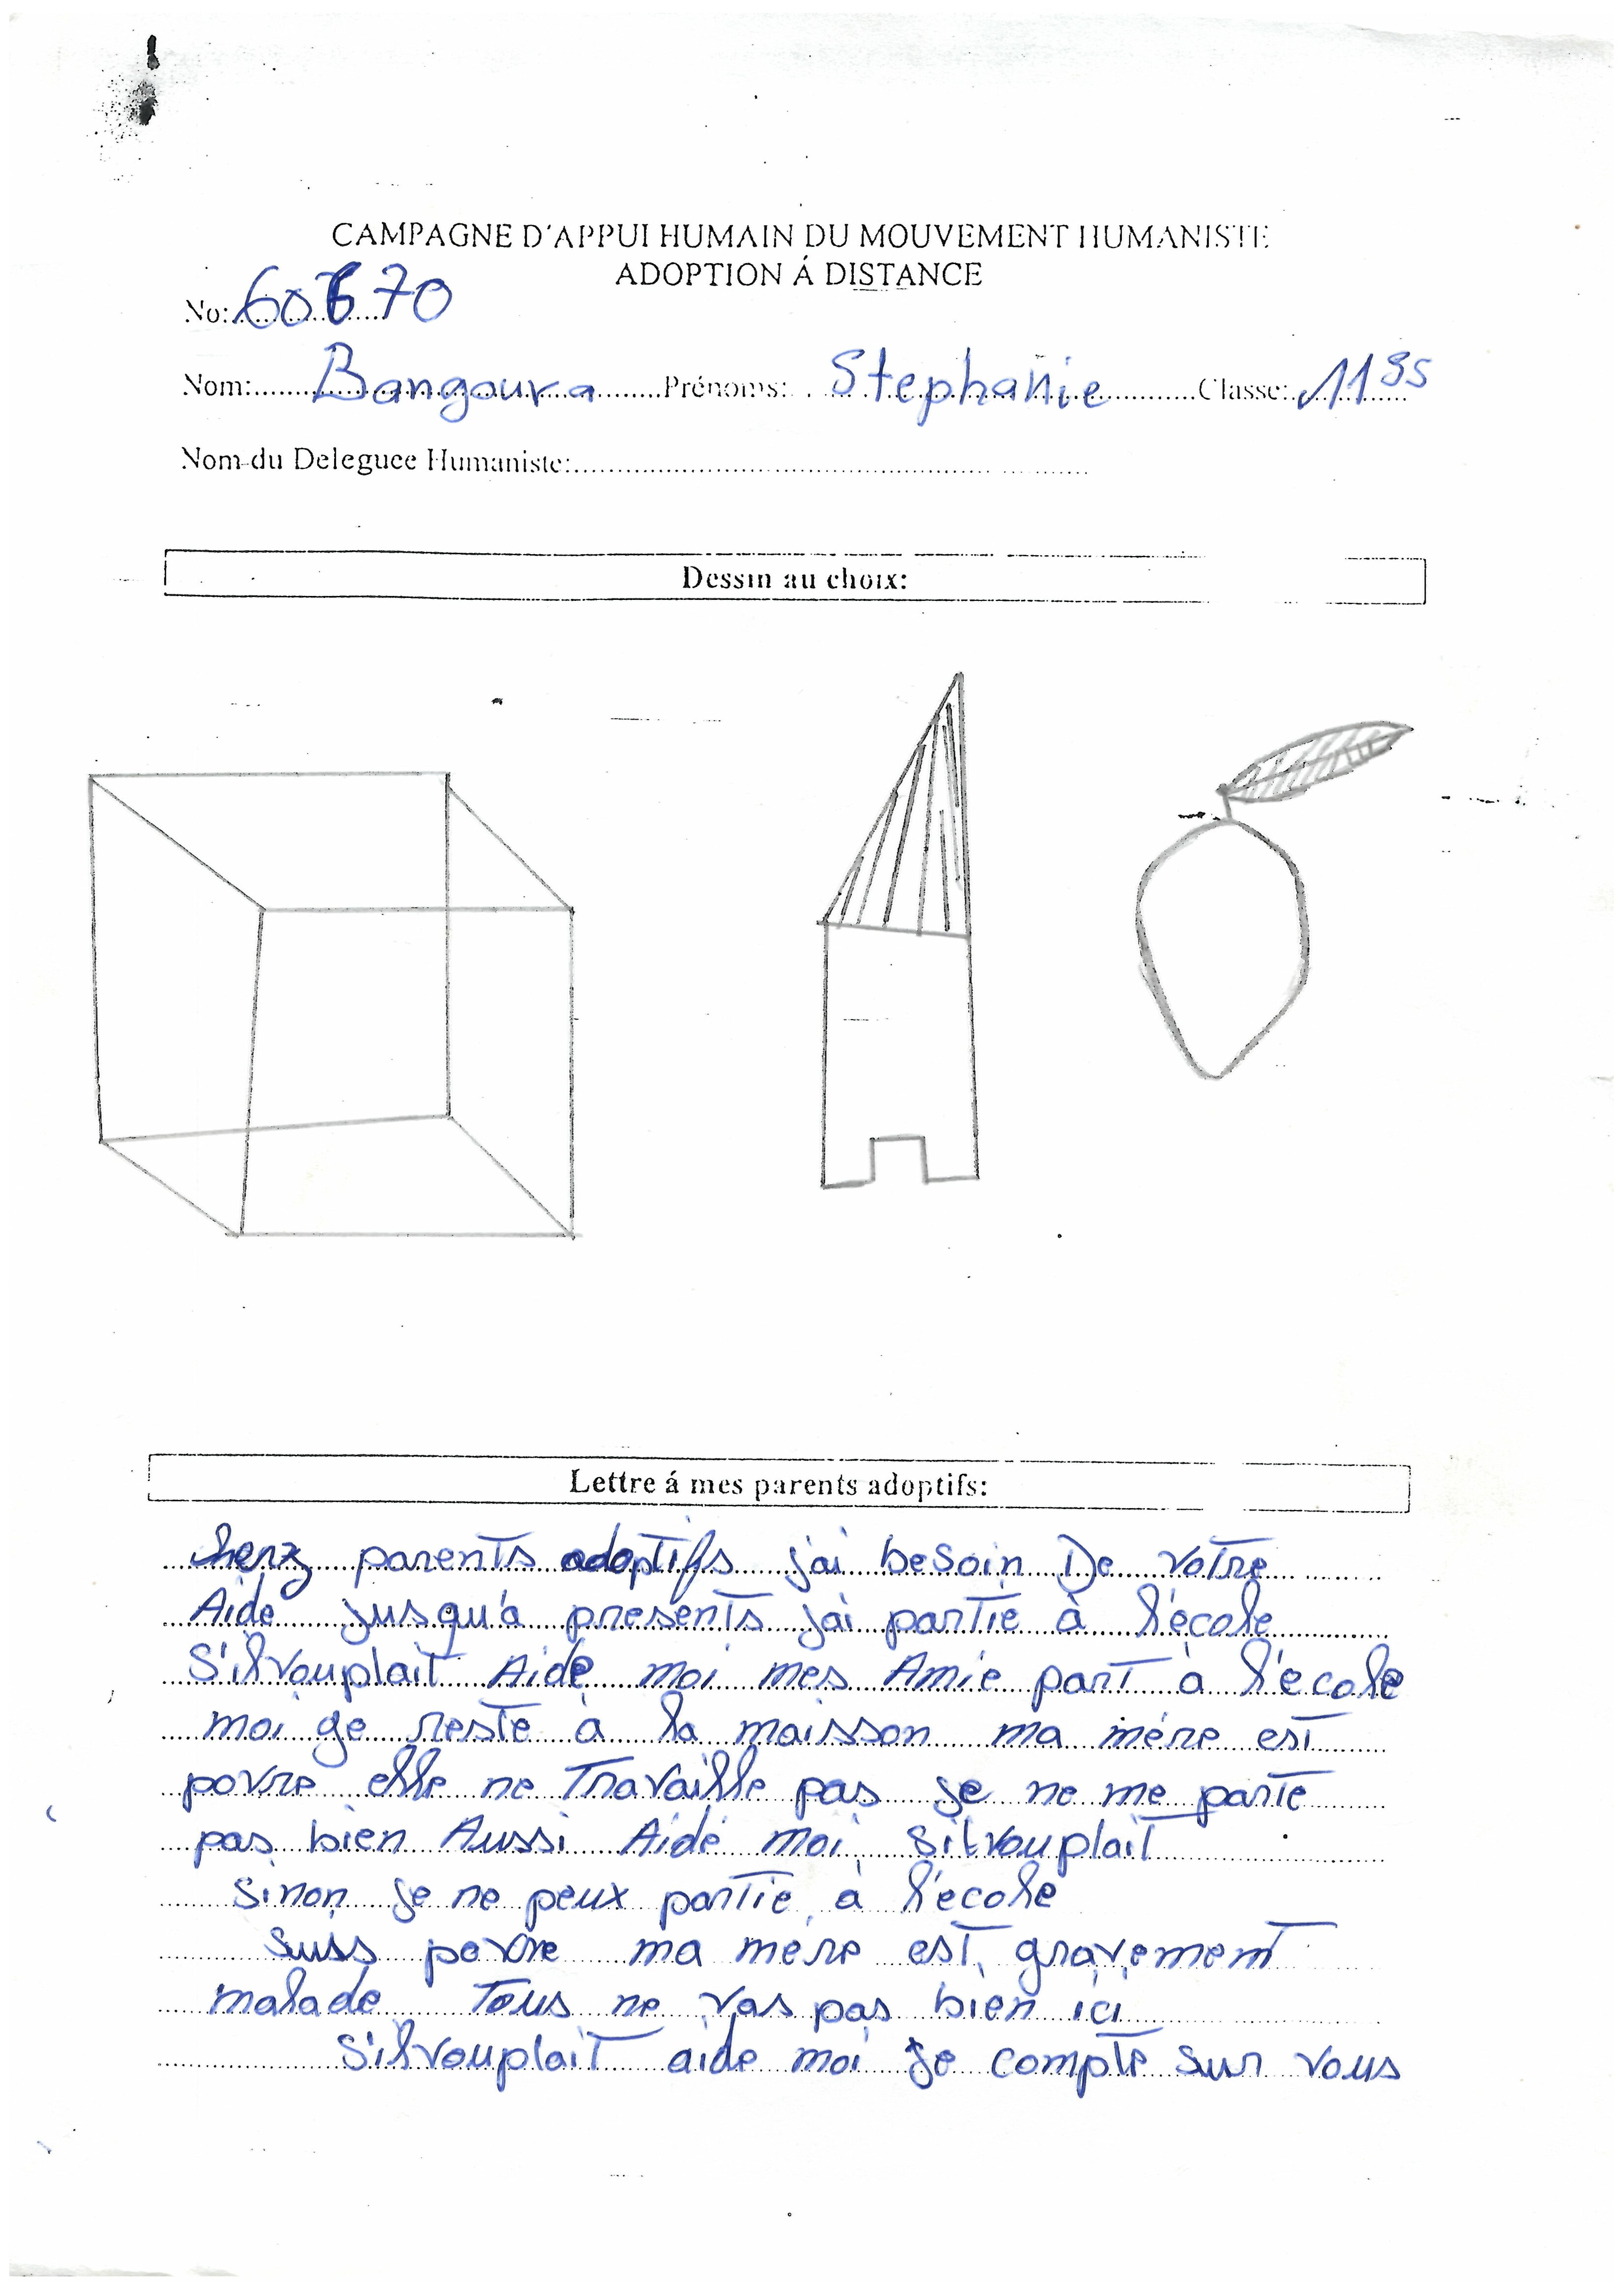 CAMPAGNE D'APPUI HUMAIN DU MOUVEMENT HUMANISTE
ADOPTION Á DISTANCE
No: 60670
Nom: Bangoura Prénoms: Stephanie Classe: 11 SS
Nom du Deleguee Humaniste:
Dessin au choix:
Lettre á mes parents adoptifs:
cherz parents adoptifs j'ai besoin De votre
Aide jusqu'a presents j'ai partie à l'école
S'ilvouplait Aide moi mes Amie part à l'ecole
moi ge reste a la maisson ma mère est
povre elle ne Travaille pas je ne me parte
pas bien Aussi Aidé moi silvouplait
sinon je ne peux partie a l'ecole
suis povre ma mere est gravement
malade Tous ne vas pas bien ici
S'ilvouplait aide moi je compte sur vous